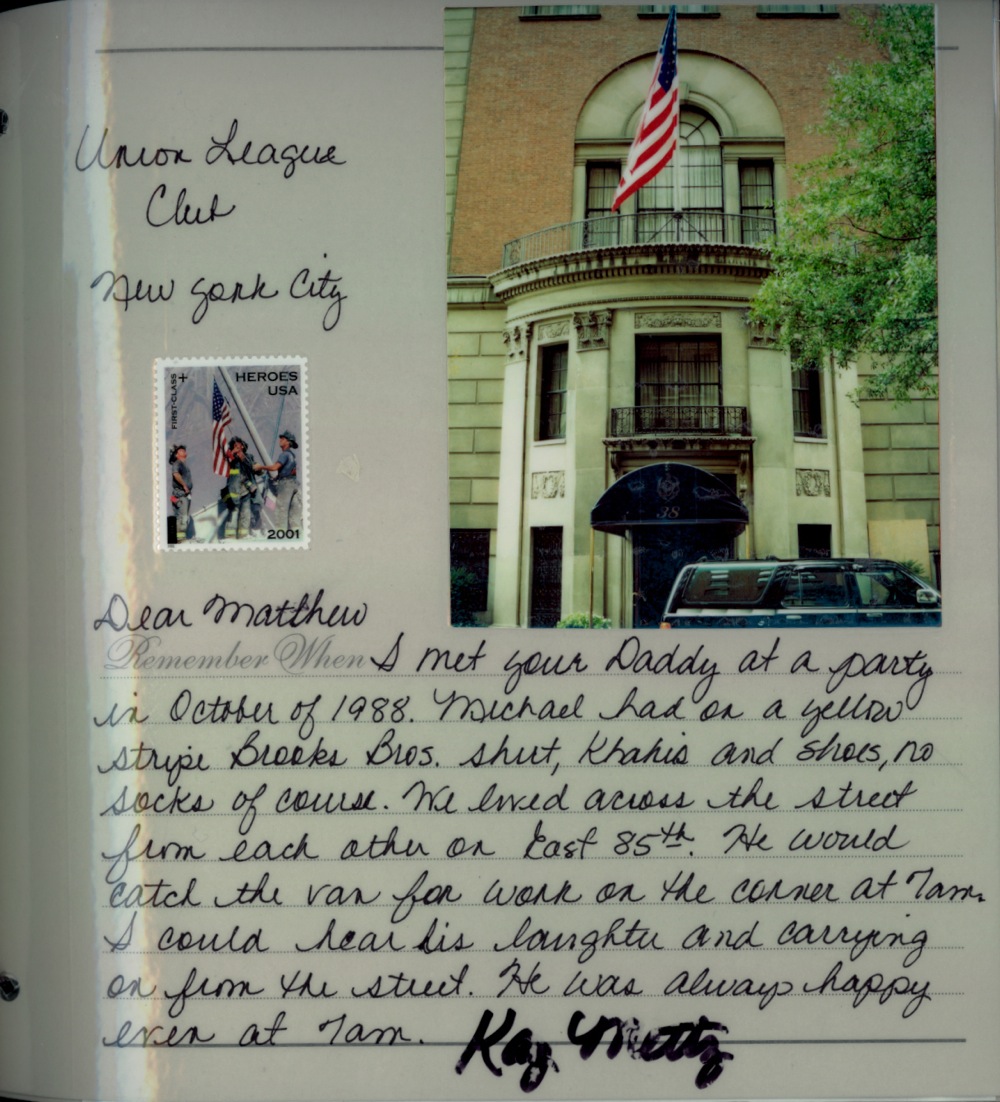 Union League
Club
New York City
FIRST-CLASS +
HEROES
USA
2001
38
Dear Matthew
Remember When I met your Daddy at a party
in October of 1988. Michael had on a yellow
stripe Brooks Bros. shirt, Khakis and shoes, no
socks of course. We lived across the street
from each other on East 85th. He would
catch the van for work on the corner at 7am.
I could hear his laughter and carrying
on from the street. He was always happy
even at 7am.
Kay